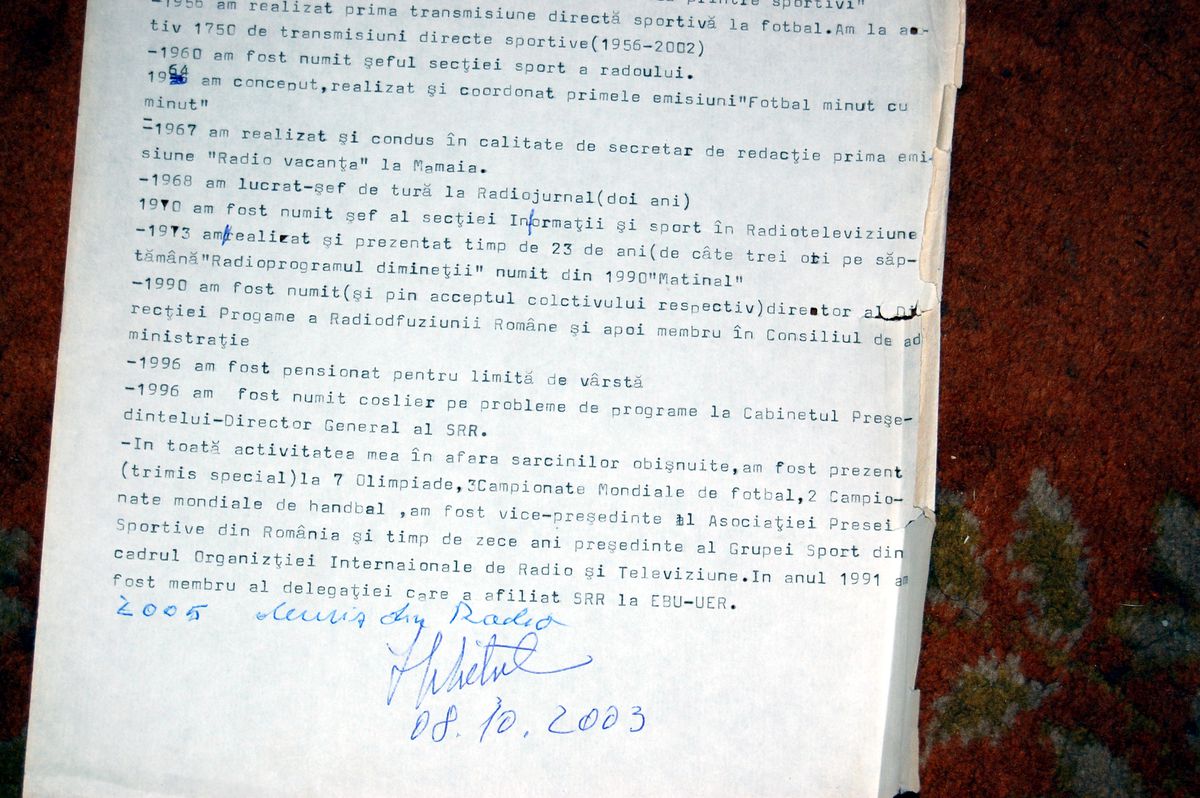 printre sportivi"
-1956 am realizat prima transmisiune directă sportivă la fotbal.Am la ac-
tiv 1750 de transmisiuni directe sportive(1956-2002)
-1960 am fost numit şeful secţiei sport a radoului.
1964 am conceput,realizat şi coordonat primele emisiuni"Fotbal minut cu
minut"
-1967 am realizat şi condus în calitate de secretar de redacţie prima emi-
siune "Radio vacanţa" la Mamaia.
-1968 am lucrat-şef de tură la Radiojurnal(doi ani)
1970 am fost numit şef al secţiei Informaţii şi sport în Radioteleviziune
-1973 am realizat şi prezentat timp de 23 de ani(de câte trei ori pe săp-
tămână"Radioprogramul dimineţii" numit din 1990"Matinal"
-1990 am fost numit(şi pin acceptul colctivului respectiv)director al Di
recţiei Progame a Radiodfuziunii Române şi apoi membru în Consiliul de ad
ministraţie
-1996 am fost pensionat pentru limită de vârstă
-1996 am fost numit coslier pe probleme de programe la Cabinetul Preşe-
dintelui-Director General al SRR.
-In toată activitatea mea în afara sarcinilor obişnuite,am fost prezent
(trimis special)la 7 Olimpiade,3Campionate Mondiale de fotbal,2 Campio-
nate mondiale de handbal ,am fost vice-preşedinte al Asociaţiei Presei
Sportive din România şi timp de zece ani preşedinte al Grupei Sport din
cadrul Organizţiei Internaionale de Radio şi Televiziune.In anul 1991 am
fost membru al delegaţiei care a afiliat SRR la EBU-UER.
2005 demis din Radio
08.10.2003